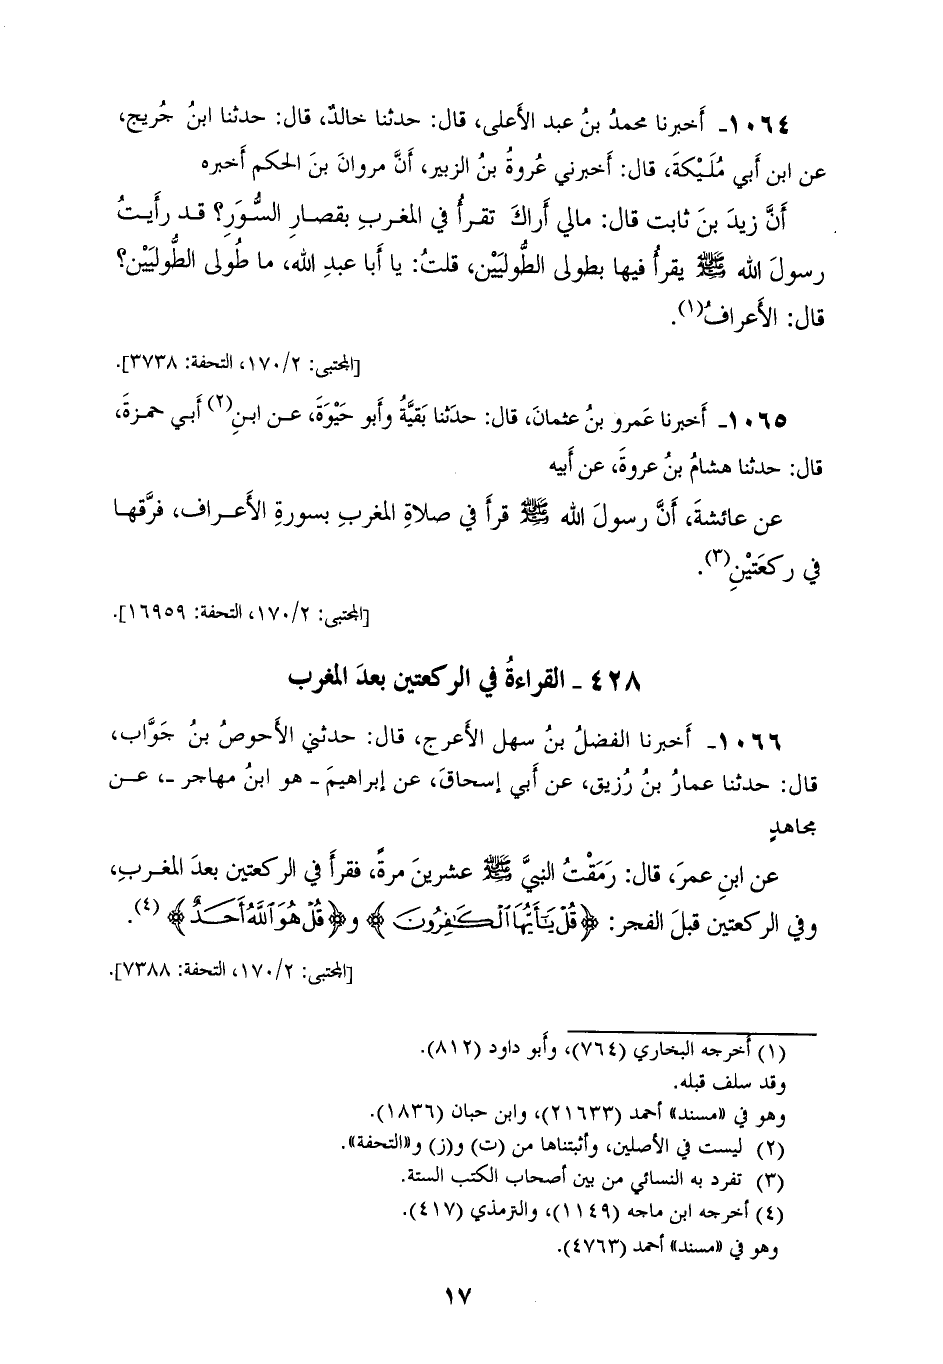 ١٠٦٤ـ أَخبرنا محمدُ بنُ عبد الأَعلى، قال: حدثنا خالدٌ، قال: حدثنا ابنُ جُريج،
عن ابن أَبي مُلَيْكةَ، قال: أَخبرني عُروةُ بنُ الزبير، أَنَّ مروانَ بنَ الحكم أَخبره
أَنَّ زيدَ بنَ ثابت قال: مالي أَراكَ تقرأُ في المغربِ بقصارِ السُّوَرِ؟ قد رأَيتُ
رسولَ الله ﷺ يقرأُ فيها بطولى الطُّوليَيْن، قلتُ: يا أَبا عبدِ الله، ما طُولى الطُّوليَيْن؟
قال: الأَعرافُ(١).
[المجتبى: ١٧٠/٢، التحفة: ٣٧٣٨].
١٠٦٥ـ أَخبرنا عَمرو بنُ عثمانَ، قال: حدَثنا بَقيَّةُ وأَبو حَيْوَةَ، عن ابنِ(٢) أَبي حمزةَ،
قال: حدثنا هشامُ بنُ عروةَ، عن أَبيه
عن عائشةَ، أَنَّ رسولَ الله ﷺ قرأَ في صلاةِ المغربِ بسورةِ الأَعراف، فرَّقها
في ركعَتَيْنِ(٣).
[المجتبى: ١٧٠/٢، التحفة: ١٦٩٥٩].
٤٢٨ ـ القراءةُ في الركعتين بعدَ المغرب
١٠٦٦ـ أَخبرنا الفضلُ بنُ سهل الأَعرج، قال: حدثني الأَحوصُ بنُ جَوَّاب،
قال: حدثنا عمارُ بنُ رُزيق، عن أَبي إسحاقَ، عن إبراهيمَ ـ هو ابنُ مهاجر ـ، عن
مجاهدٍ
عن ابنِ عمرَ، قال: رَمَقْتُ النبيَّ ﷺ عشرينَ مرةً، فقرأَ في الركعتين بعدَ المغربِ،
وفي الركعتين قبلَ الفجر: ﴿قُلْ يَٰٓأَيُّهَا ٱلْكَٰفِرُونَ﴾ و﴿قُلْ هُوَ ٱللَّهُ أَحَدٌ﴾ (٤).
[المجتبى: ١٧٠/٢، التحفة: ٧٣٨٨].
(١) أخرجه البخاري (٧٦٤)، وأَبو داود (٨١٢).
وقد سلف قبله.
وهو في «مسند» أحمد (٢١٦٣٣)، وابن حبان (١٨٣٦).
(٢) ليست في الأصلين، وأثبتناها من (ت) و(ز) و«التحفة».
(٣) تفرد به النسائي من بين أصحاب الكتب الستة.
(٤) أخرجه ابن ماجه (١١٤٩)، والترمذي (٤١٧).
وهو في «مسند» أحمد (٤٧٦٣).
١٧